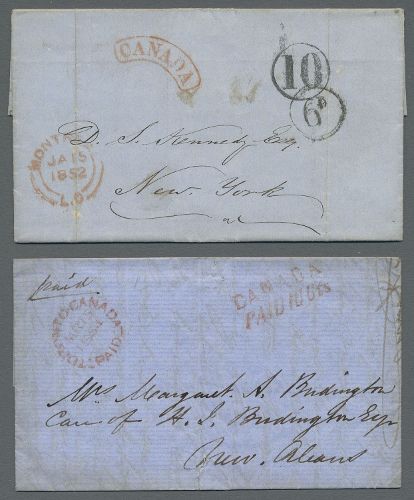 CANADA
10
6D
MONTR
JA 15
1852
L.C
D. S. Kennedy Esq.
New York
paid
CANADA
PAID 10 Cts
CANADA
PAID
Mrs Margaret A. Budington
Care of H. S. Budington Esq
New Orleans